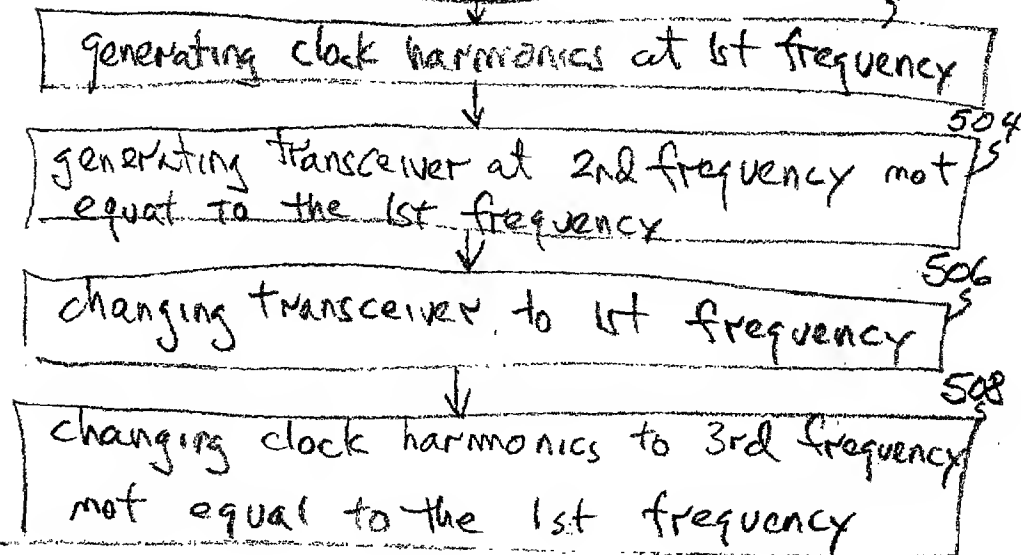 generating clock harmonics at 1st frequency
504
generating transceiver at 2nd frequency not
equal to the 1st frequency
506
changing transceiver to 1st frequency
508
changing clock harmonics to 3rd frequency
not equal to the 1st frequency